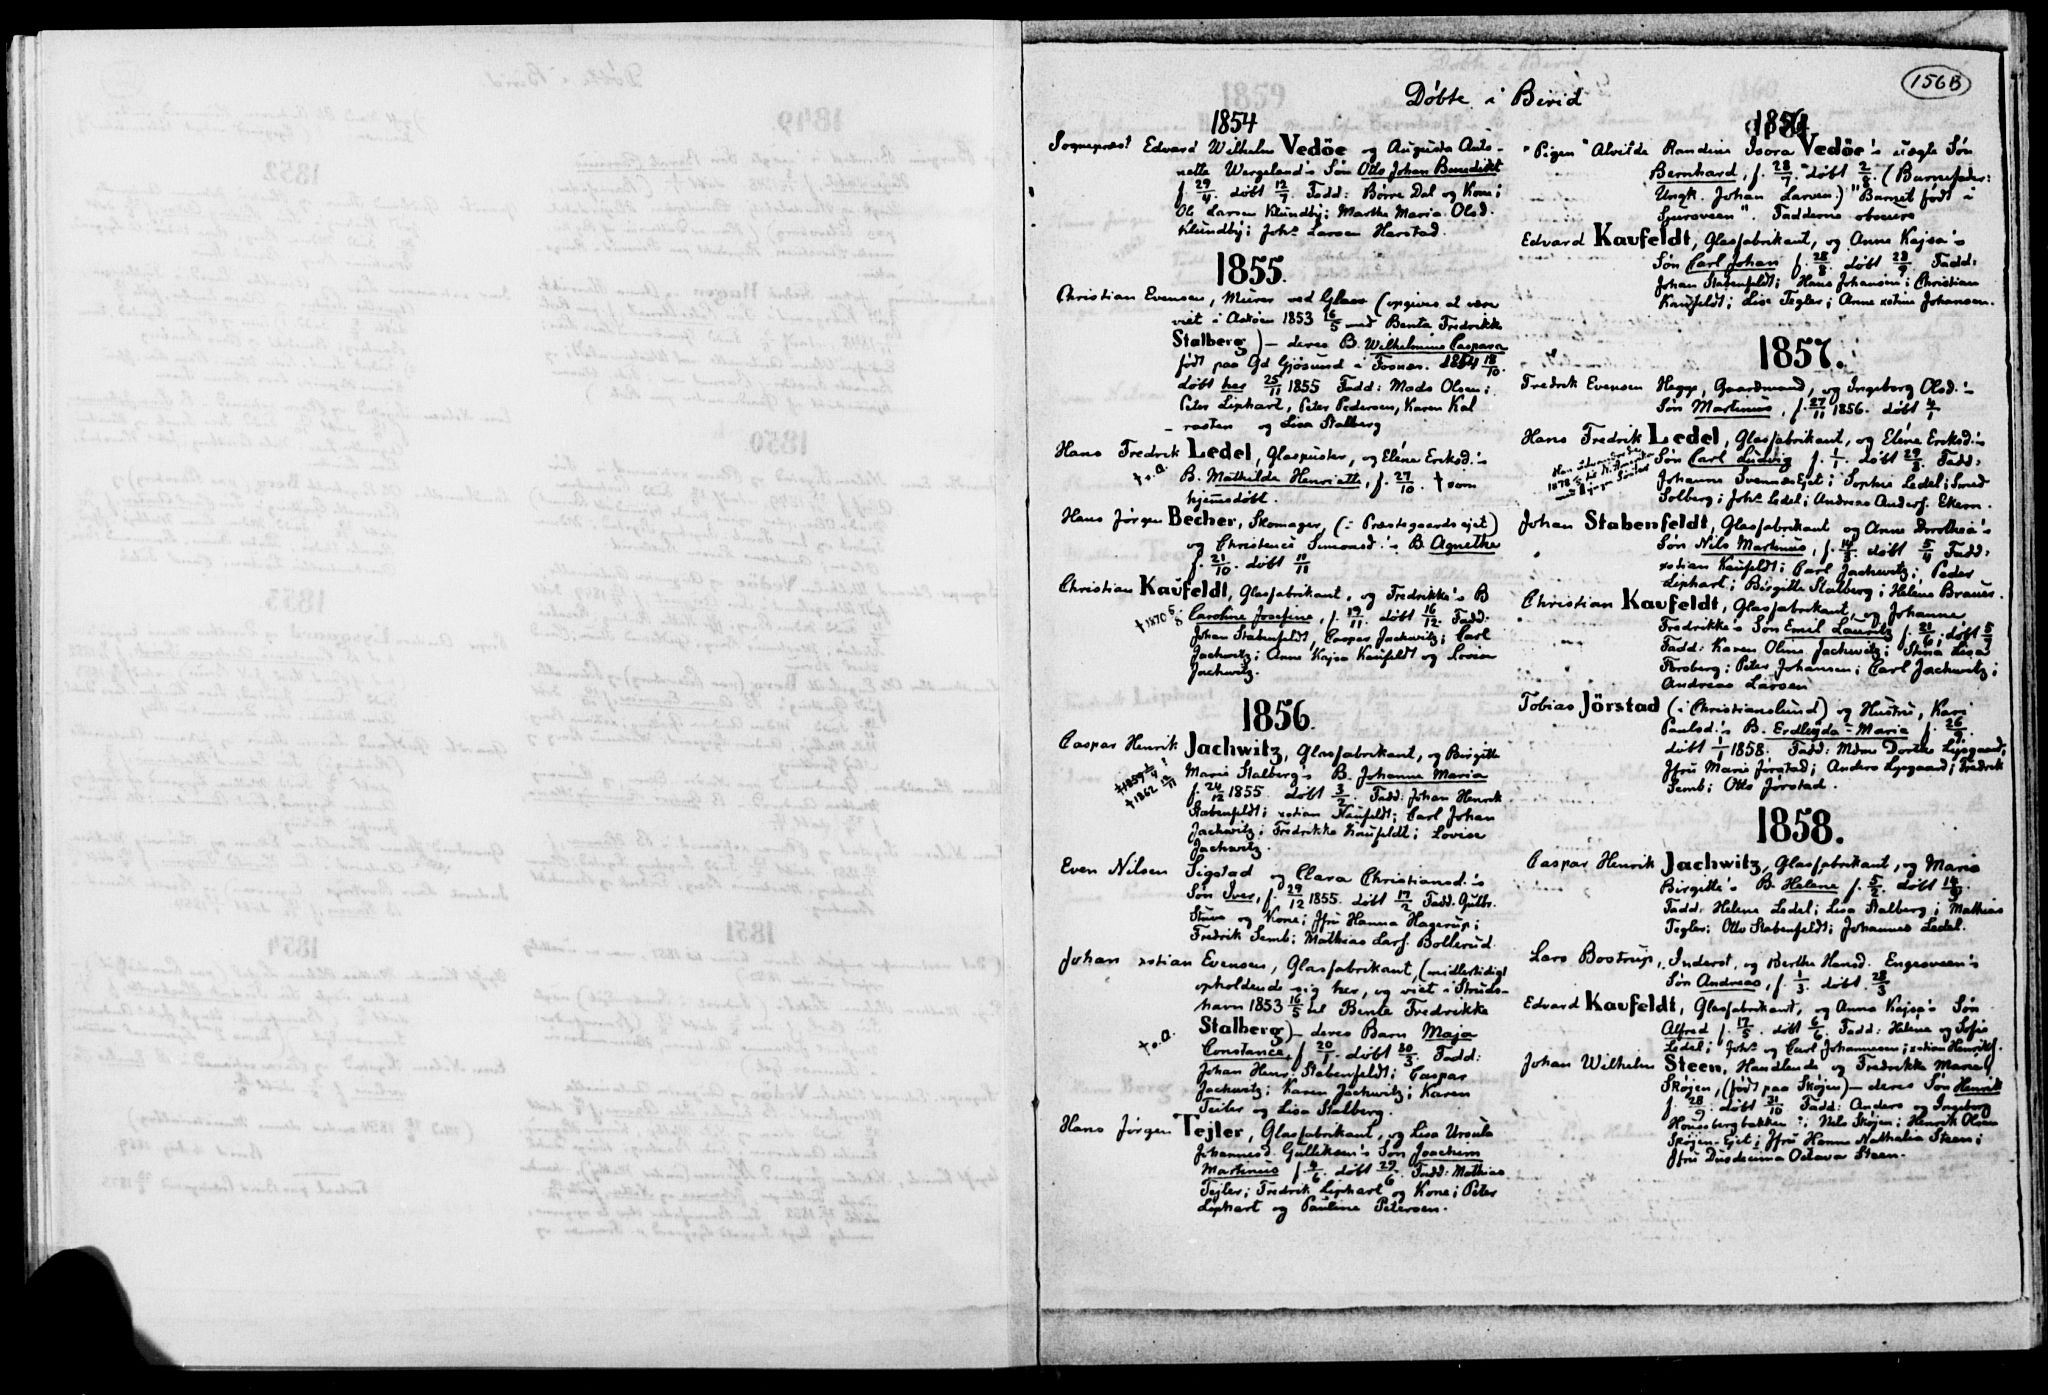 156B
Döbte i Birid
1854
Sognepræst Edvard Wilhelm Vedöe og Augusta Anto-
nette Wergeland's Søn Otto Johan Benedikt
f. 29/4. døbt 12/7. Fadd: Børre Dal og Kone;
Ole Larsen Klundby; Marthe Maria Olsd.
Klundby; Johs Larsen Harstad.
1855.
Christian Evensen, Murer ved Glass (opgives at være
viet i Askøen 1853 16/5 med Bente Fredrikke
Stalberg) – deres B. Wilhelmine Caspara
født paa Gd Gjøsund i Fosnæs. 1854 18/10.
døbt her 25/11 1855 Fadd: Mads Olsen;
Peter Liphart, Peter Pedersen, Karen Kal
- rasten og Lisa Stalberg
Hans Fredrik Ledel, Glaspuster, og Eléne Eriksd.'s
† o.a. B. Mathilde Henriette, f. 27/10. † som
hjemsdøbt.
Hans Jørgen Becher, Skomager, (i Præstegaardsejet)
og Christence Simonsd.'s B. Agnethe
f. 21/10. døbt 11/11
Christian Kaufeldt, Glasfabrikant, og Fredrikke's B
† 1870 5/8 Caroline Josefine, f. 19/11. døbt 16/12. Fadd:
Johan Stabenfeldt, Caspar Jachwitz; Carl
Jachwitz; Anne Kajsa Kaufeldt og Lovise
Jachwitz.
1856.
Caspar Henrik Jachwitz, Glasfabrikant, og Birgitte
Marie Stalberg's B. Johanne Maria
† 1862 f. 24/12 1855. døbt 3/2. Fadd: Johan Henrik
Stabenfeldt; xstian Kaufeldt; Carl Johan
Jachwitz; Fredrikke Kaufeldt; Lovise
Jachwitz.
Even Nilsen Sigstad og Clara Christiansd.'s
Søn Iver, f. 29/12 1855. døbt 17/2 Fadd. Gulbr.
Stuve og Kone; Jfru Hanna Hagerup;
Fredrik Semb; Mathias Larf. Bollerud.
Johan xstian Evensen, Glasfabrikant, (midlertidigt
opholdende sig her, og viet i Struds-
havn 1853 16/5 til Bente Fredrikke
Stalberg) – deres Barn Maja
† o.a. Constance, f. 20/1. døbt 30/3. Fadd:
Johan Henr. Stabenfeldt; Caspar
Jachwitz; Karen Jachwitz; Karen
Teiler og Lisa Stalberg.
Hans Jörgen Tejler, Glasfabrikant, og Lisa Ursula
Johannesd. Gulliksen's Søn Joachim
Martinus f. 4/6. døbt 29/6. Fadd: Mathias
Tejler; Fredrik Liphart og Kone; Peter
Liphart og Pauline Petersen.
1856
"Pigen" Alvilde Randine Isora Vedöe's uægte Søn
Bernhard, f. 28/7. døbt 2/8. (Barnefader:
Ungk. Johan Larsen.) "Barnet født i
Fadderne obscure
Edvard Kaufeldt, Glasfabrikant, og Anne Kajsa's
Søn Carl Johan f. 28/8 døbt 28/9. Fadd:
Johan Stabenfeldt; Hans Johansen; Christian
Kaufeldt; Lise Tegler; Anne xstine Johansen.
1857.
Fredrik Evensen Hegge, Gaardmand, og Ingeborg Olsd.'s
Søn Martinus, f. 27/11 1856. døbt 4/1
Hans Fredrik Ledel, Glasfabrikant, og Eléne Eriksd.'s
Søn Carl Ludvig f. 1/1. døbt 29/3. Fadd:
Johanne SvennæsEjet; Sophie Ledel; Smed
Solberg; Johs Ledel; Andreas Anders. Ekern.
Johan Stabenfeldt, Glasfabrikant og Anne Dorothea's
Søn Nils Martinus, f. 14/3. døbt 5/4 Fadd:
xstian Kaufeldt; Carl Jachwitz; Peder
Liphart; Birgitte Stalberg; Helene Brauer.
Christian Kaufeldt, Glasfabrikant, og Johanne
Fredrikke's Søn Emil Lauritz f. 21/6; døbt 5/9
Fadd: Karen Oline Jachwitz; Stina Lisa
Forsberg; Peter Johansen; Carl Jachwitz;
Andreas Larsen
Tobias Jörstad (i Christianslund) og Hustru, Kari
Paulsd.'s B. Erdleyda-Maria f. 26/9.
døbt 1/1 1858. Fadd: Mdm Dorthe Lysgaard;
Jfru Marie Jørstad; Anders Lysgaard; Fredrik
Semb; Otto Jørstad.
1858.
Caspar Henrik Jachwitz, Glasfabrikant, og Marie
Birgitte's B. Helene f. 5/2. døbt 14/3.
Fadd: Helene Ledel; Lisa Stalberg; Mathias
Tegler; Otto Stabenfeldt; Johannes Ledel.
Lars Bostrup, Inderst, og Berthe Hansd. Engesveen's
Søn Andreas, f. 1/3. døbt 28/3
Edvard Kaufeldt, Glasfabrikant, og Anna Kajsa's Søn
Alfred f. 17/5. døbt 6/6. Fadd: Helene og Sofie
Ledel; Johs og Carl Johannesen; xstian Henriks.
Johan Wilhelm Steen, Handlende og Fredrikke Marie
Skøjen, (født paa Skøjen) – deres Søn Henrik
f. 28/9. døbt 31/10 Fadd: Anders og Ingeborg
Honsbergbakken; Nils Skøjen; Henrik Olsen
Skøjen-Ejet; Jfru Hanne Nathalia Steen;
Jfru Dusdecima Octava Steen.